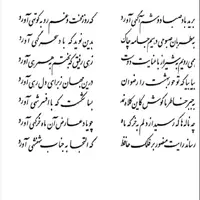 برید باد صبا دوشم آگهی آورد که روز محنت و غم رو به کوتهی آورد
به مطربان صبوحی دهیم جامه چاک بدین نوید که باد سحرگهی آورد
همی رویم به شیراز با عنایت زهی رفیق که بختم به همرهی آورد
بیا بیا که تو حور بهشت را رضوان درین جهان ز برای دل رهی آورد
به جبر خاطر ما کوش کاین کلاه نمد بسا شکست که با افسر شهی آورد
چه ناله‌ها که رسید از دلم به خرگه ماه چو یاد عارض آن ماه خرگهی آورد
رساند رایت منصور بر فلک حافظ که التجا به جناب شهنشهی آورد